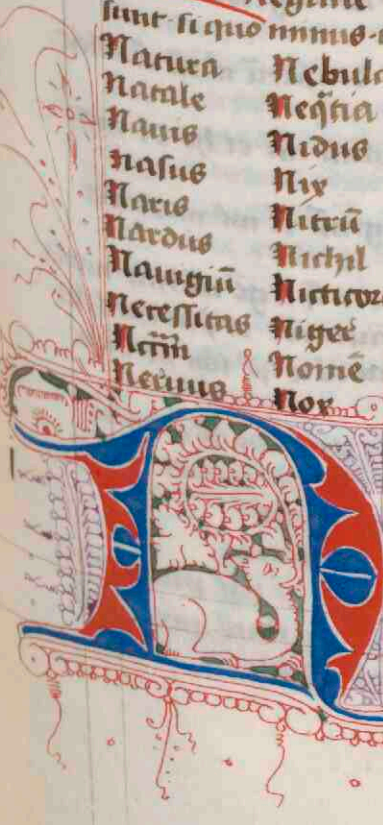 sunt. si quo minus.
Natura
Natale
Nauis
Nasus
Naris
Nardus
Nauigiū
Necessitas
Neruus
Nebula
Neq̄tia
Nidus
Nix
Nitrū
Nichil
Nicticor
Niger
Nomē
Nox